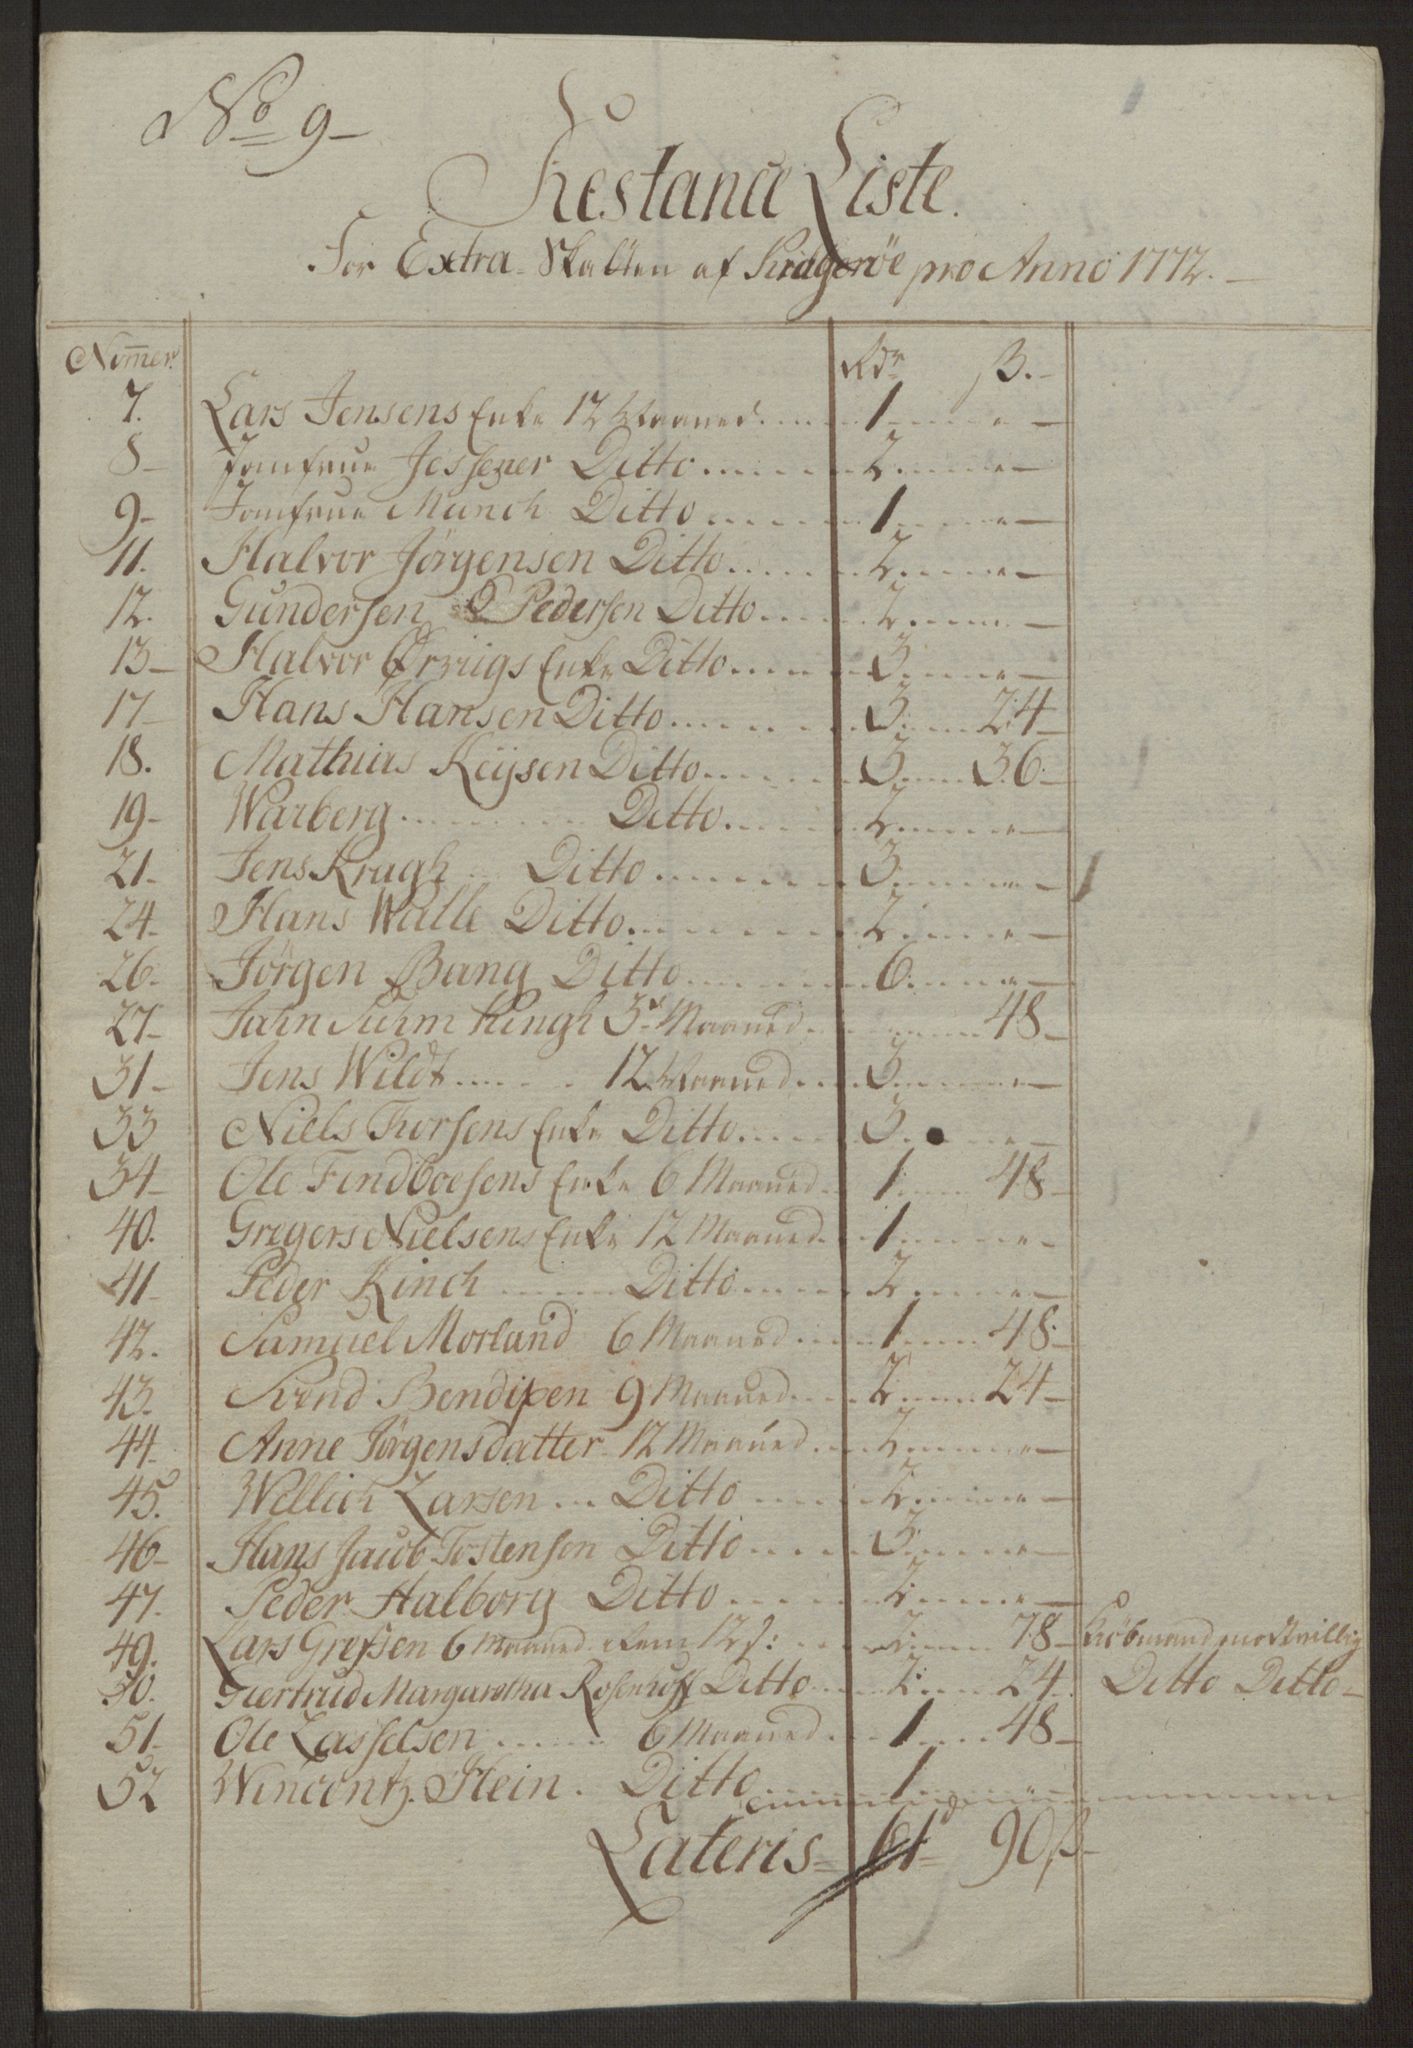 No 9
Restance Liste.
For Extra-Skatten af Kragerøe pro Anno 1772.
Nummer. Rdr ß.
7. Lars Jensens Enke 12 Maaned 1 "
8 Jomfrue Jessener Ditto 2 "
9 Jomfrue Munch Ditto 1 "
11. Halvor Jørgensen Ditto 2 "
12. Gundersen Pedersen Ditto 2 "
13 Halvor Ørvigs Enke Ditto 3 "
17 Hans Hansen Ditto 3 24
18. Mathias Keysen Ditto 3 36
19 Warberg Ditto 2 "
21. Jens Kragh Ditto 3 "
24. Hans Walle Ditto 2 "
26. Jørgen Bang Ditto 6 "
27 Jahn Suhm Kingh 3de Maaned " 48
31 Jens Wildt 12 Maaned 3 "
33 Niels Thorsens Enke Ditto 3 "
34 Ole Findboesens Enke 6 Maaned 1 48
40. Gregers Nielsens Enke 12 Maaned 1 "
41 Peder Kinch Ditto 2 "
42. Samuel Morland 6 Maaned 1 48
43. Svend Bendixen 9 Maaned 2 24
44. Anne Jørgensdatter 12 Maaned 2 "
45. Wellich Larsen Ditto 2 "
46 Hans Jacob Tostensen Ditto 3 "
47. Peder Halborg Ditto 2 "
49. Lars Gregsen 6 Maaned 2 78 Kiøbmand modtvillig
50. Giertrud Margaretha Rosenhoff Ditto 2 24 Ditto Ditto
51 Ole Lasselsen 6 Maaned 1 48
52 Wincentz Hein. Ditto 1 "
Lateris 61 90 ß